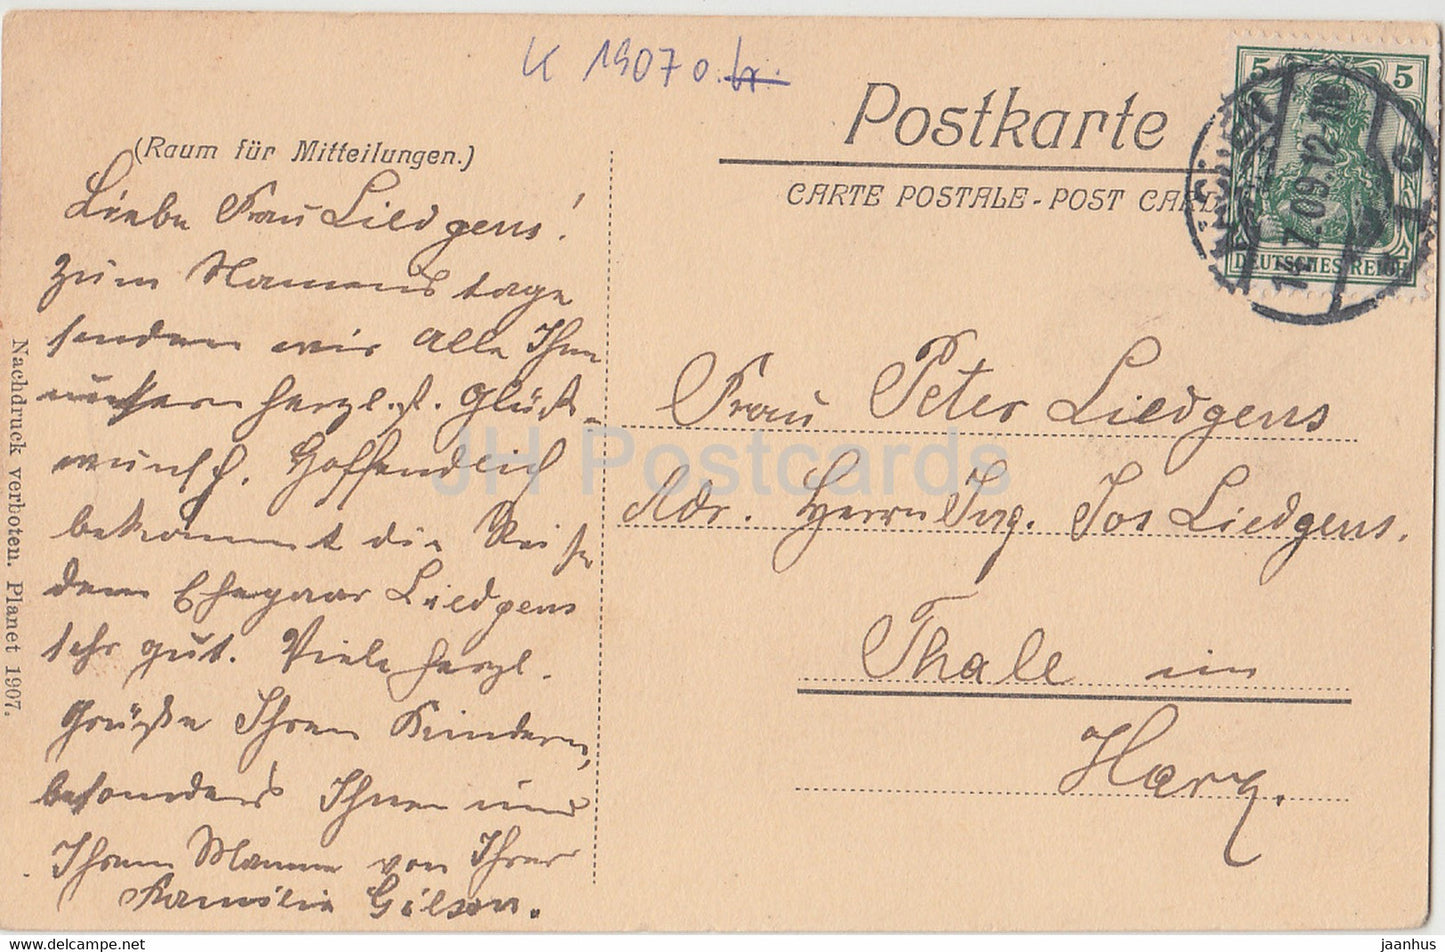 K 1907 o.
Postkarte
(Raum für Mitteilungen.)
CARTE POSTALE - POST CARD
5 5
DEUTSCHES REICH
7.09.12-1N
Liebe Frau Liedgens!
Zum Namenstage
senden wir alle Ihnen
unsern herzlichst. Glück-
wunsch. Hoffendlich
bekommt die Reise
dem Ehepaar Liedgens
sehr gut. Viele herzl.
Grüße Ihren Kindern,
besonders Ihnen und
Ihrem Manne von Ihrer
Familie Gilson.
Frau Peter Liedgens
Adr. Herrn Ing. Jos Liedgens.
Thale im
Harz.
Nachdruck verboten. Planet 1907.
JH Postcards
www.delcampe.net
jaanhus